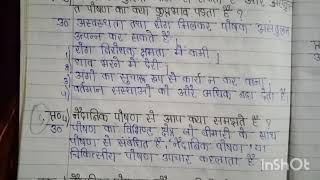 त पोषण का क्या कुप्रभाव पड़ता है ?
उ० अस्वस्थता तथा रोग मिलकर पोषक असंतुलन
उत्पन्न कर सकते हैं।
1) रोग निरोधक क्षमता में कमी।
2) घाव भरने में देरी।
3) अंगों का सुचारू रूप से कार्य न कर पाना
4) वर्तमान समस्याओं की ओर अधिक बढ़ा देता है
प्र०4) नैदानिक पोषण से आप क्या समझते हैं ?
उ० पोषण का विशिष्ट क्षेत्र जो बीमारी के साथ
पोषण से संबंधित है, "नैदानिक पोषण" या
चिकित्सीय पोषण उपचार कहलाता है
InShot